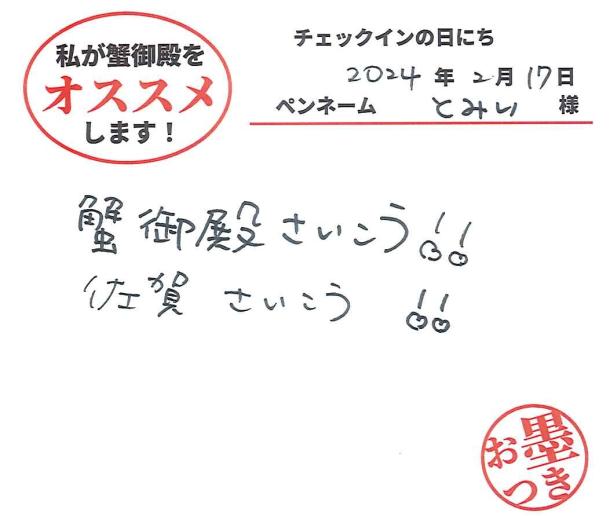 私が蟹御殿を
オススメ
します！
チェックインの日にち
2024 年 2月 17日
ペンネーム とみい 様
蟹御殿さいこう!!
佐賀 さいこう !!
お墨
つき